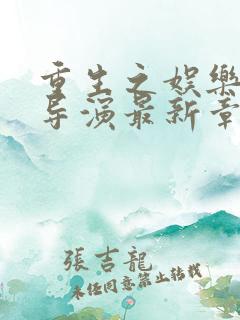 重生之娱樂
导演最新章
張吉龍
未经同意禁止转载